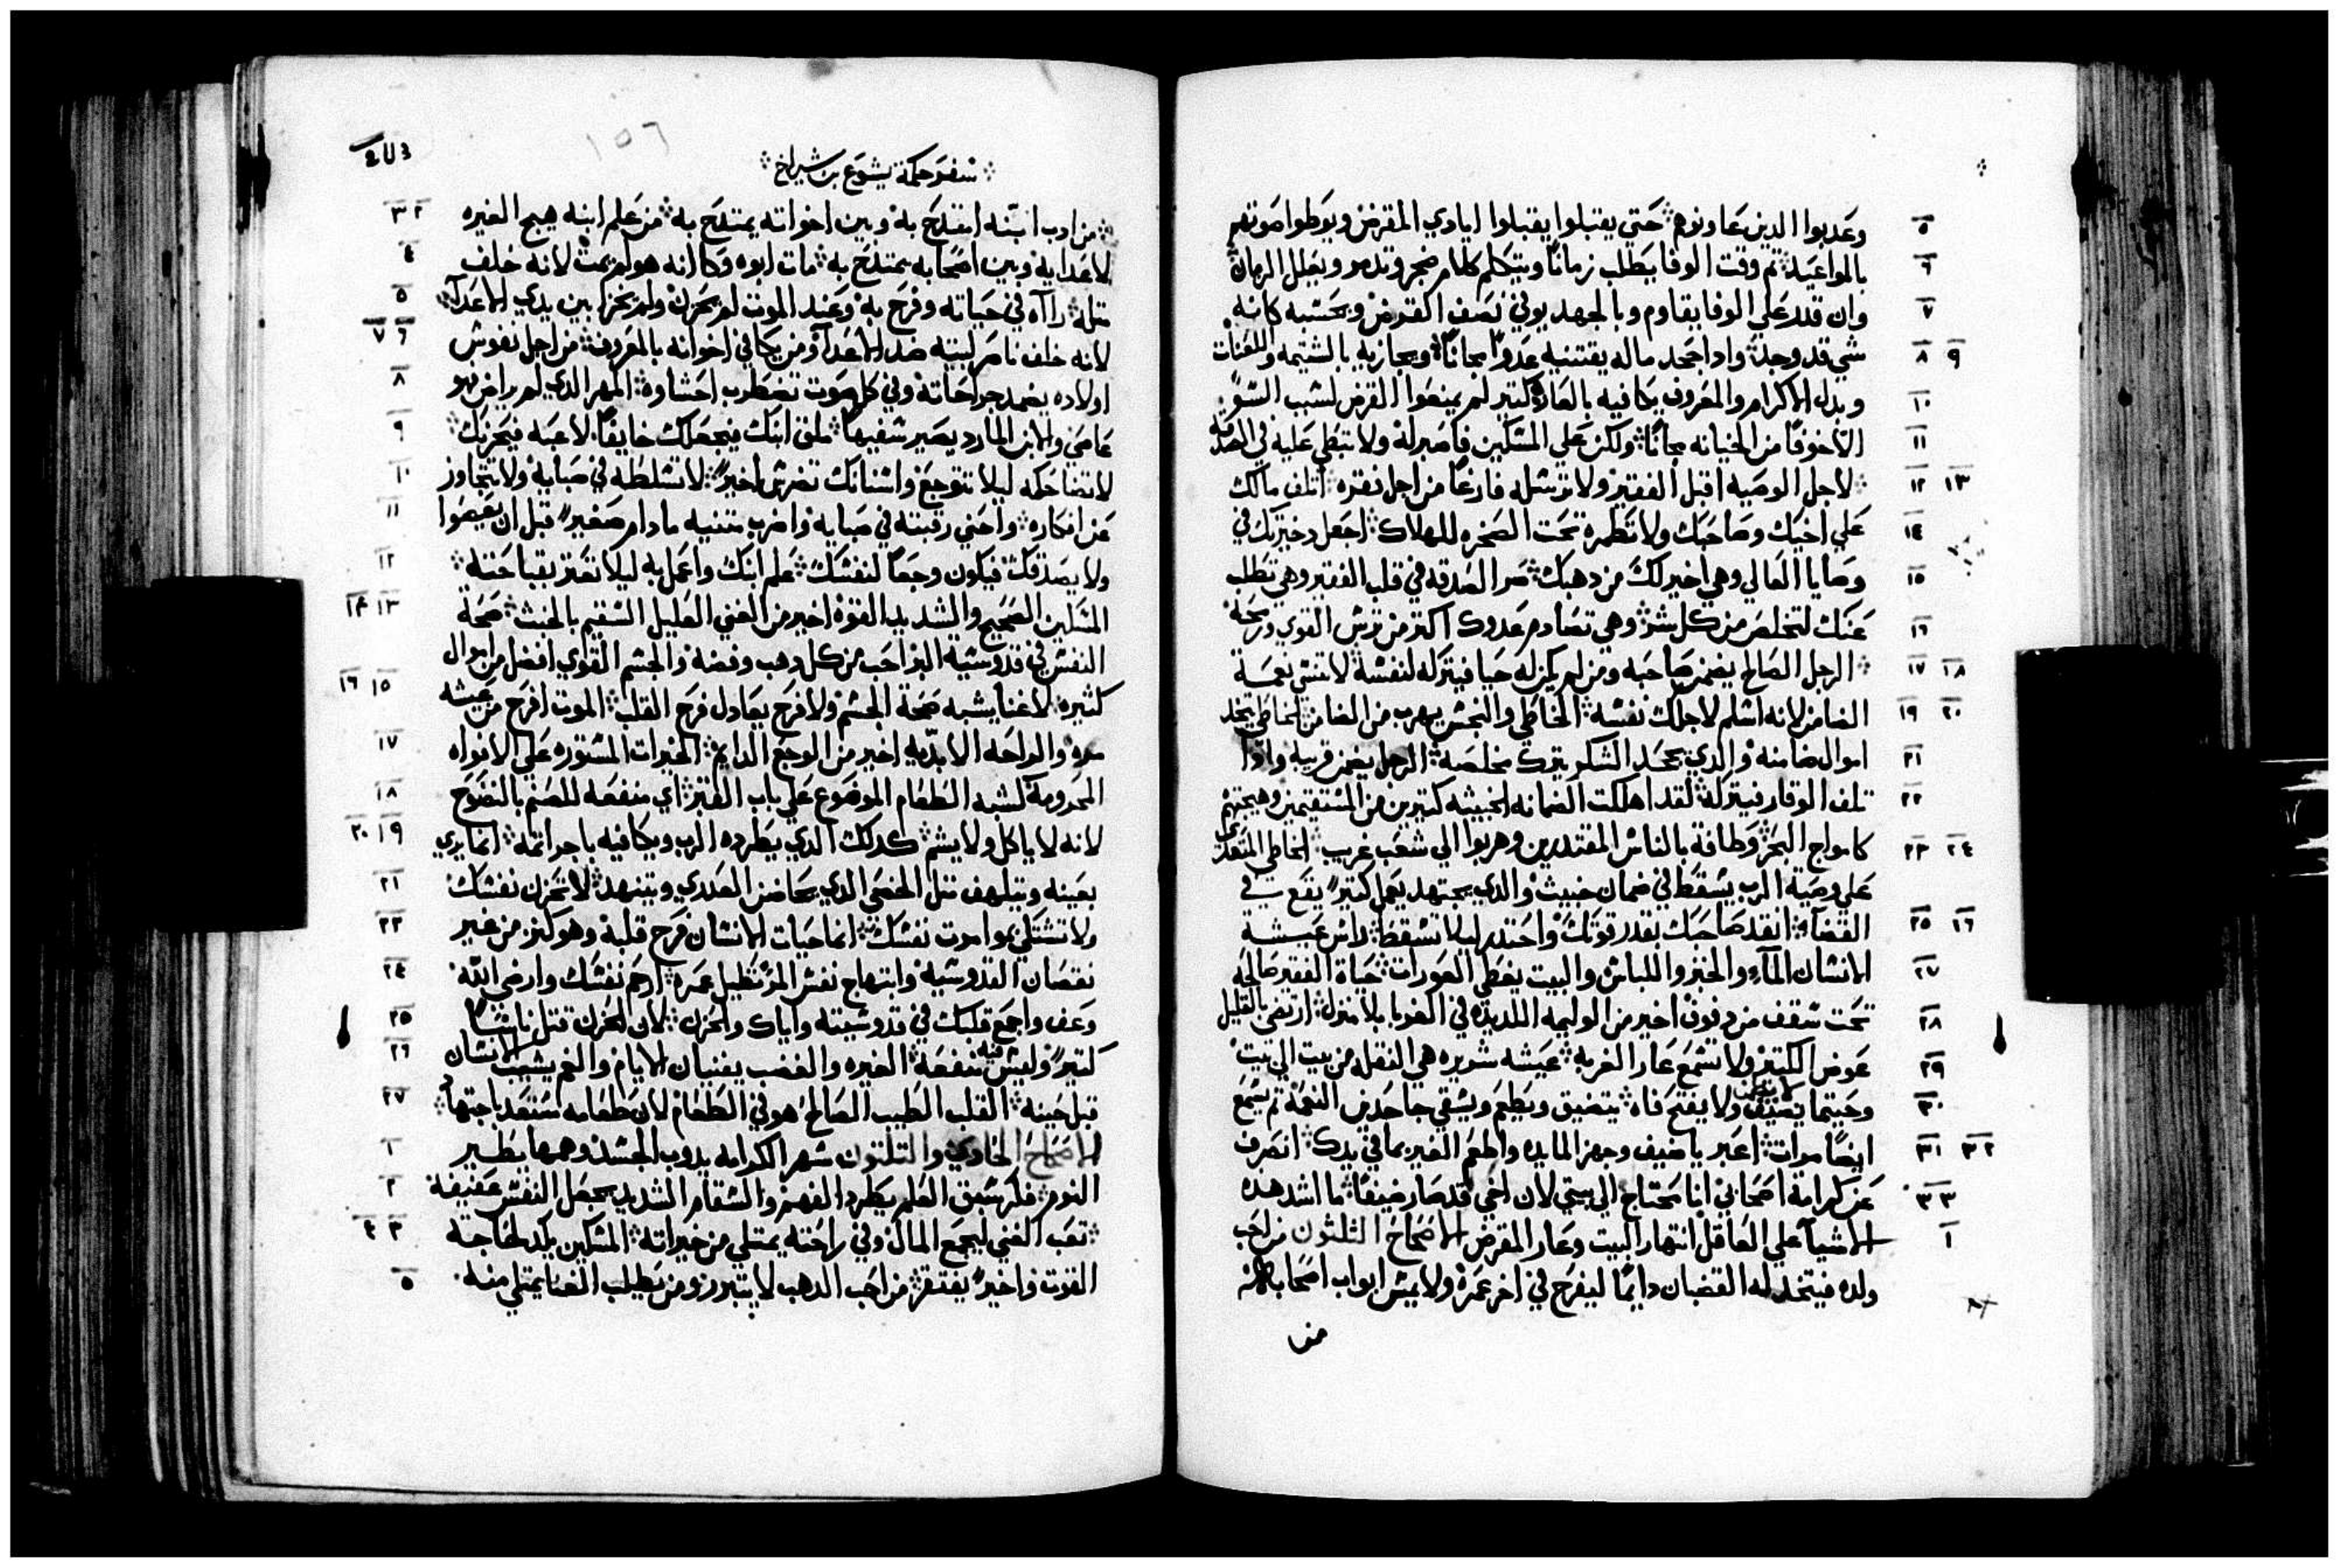 وعدبوا الدين عاونوهم حتي يقتبلوا يقبلوا ايادي المقرض ويوطوا صوتهم
بالمواعيد ثم وقت الوفا يطلب زمانا ويتكلم كلام ضجر وتدمر ويعلل الزمان
وان قدر علي الوفا يقاوم وبالجهد يوفي نصف القرض ويحسبه كانه
شي قد وجد وادا جحد ماله يقتنيه عدوا مجانا ويجازيه بالشتيمه واللعنات
وبدل الاكرام والمعروف يكافيه بالعار كتير لم يمنعوا القرض لسبب السو
الا خوفا من الخيانه مجانا ولكن علي المسكين فاصبر له ولا تبطي عليه في الصدقه
لاجل الوصيه اقبل الفقير ولا ترسله فارغا من اجل فقره اتلف مالك
علي اخيك وصاحبك ولا تطمره تحت الصخره للهلاك اجعل دخيرتك في
وصايا العالي وهي اخير لك من دهبك صر الصدقه في قلب الفقير وهي تطلب
عنك لتخلص من كل شر وهي تصادم عدوك اكتر من ترس القوي ورمحه
الرجل الصالح يضمن صاحبه ومن لم يكن له حيا فيتركه لنفسه لا تنس نعمة
الضامن لانه اسلم لاجلك نفسه الخاطي والنجس يهرب من الضامن الخاطي يتخد
اموال ضامنه والدي يجحد الشكر يترك مخلصه الرجل يضمن قريبه وادا
تلف الوقار فيتركه لقد اهلكت الضمانه الخبيثه كتيرين من المستقيمين وهيجتهم
كامواج البحر وطافة بالناس المقتدرين وهربوا الي شعب غريب الخاطي المتعدي
علي وصية الرب يسقط في ضمان خبيث والدي يجتهد يعمل كتيرا يقع في
القضا انقد صاحبك بقدر قوتك واحتدر ليلا تسقط راس عيشة
الانسان الما والخبز واللباس والبيت يغطي العورات حياة الفقير صالحه
تحت سقف من دفوف اخير من الوليمه اللديده في الغربا بلا منزل ارتضي بالقليل
عوض الكتير ولا تسمع عار الغربه عيشه شريره هي النقله من بيت الي بيت
وحيتما يضيف ولا يفتح فاه يتضيق ويطعم ويسقي جاحدين النعمة ثم يسمع
ايضا مرات اعبر يا ضيف وجهز المايده واطعم الغير بما في يدك انصرف
عن كرامة اصحابي انا محتاج الي بيتي لان اخي قد صار ضيفا ما اشد هده
الاشيا علي العاقل انتهار البيت وعار المقرض الاصحاح الثلثون من احب
ولده فيتخد له القضبان دايما ليفرح في اخر عمره ولا يمس ابواب اصحابه
من
سفر حكمة يشوع بن شيراخ
من ادب ابنه امتدح به وبين اخواته يمتدح به من علم ابنه هيج الغيره
لاعدايه وبين اصحابه يمتدح به مات ابوه وكانه هو لم يمت لانه خلف
مثله راه في حياته وفرح به وعند الموت لم يحزن ولم يخز بين يدي الاعدا
لانه خلف ناصر لبيته ضد الاعدا ومن يكافي اخوانه بالمعروف من اجل نفوس
اولاده يضمد جراحاته وفي كل صوت تضطرب احشاوه المهر الدي لم يراض هو
عاصي والابن المارد يصير سفيها ملق ابنك فيجعلك خايفا لاعبه فيحزنك
لا تضاحكه ليلا تتوجع واسنانك تضرس اخيرا لا تسلطه في صبايه ولا تتجاوز
عن افكاره واحني رقبته في صبايه واضرب متنيه ما دام صغيرا قبل ان يعيصوا
ولا يصدقك فيكون وجعا لنفسك علم ابنك واعمل به ليلا تعتر بقباحته
المسكين الصحيح والشديد القوه اخير من الغني العليل السقيم بالخبث صحة
النفس في قدوسية البر احب من كل دهب وفضه والجسم القوي افضل من اموال
كثيره لا غنا يشبه صحة الجسم ولا فرح يعادل فرح القلب الموت افرح من عيشه
مره والراحه الابديه اخير من الوجع الدايم الخيرات المستوره علي الافواه
المحرومه كشبه الطعام الموضوع علي باب القبر اي منفعه للصنم بالنضوح
لانه لا ياكل ولا يشم كدلك الدي يطرده الرب ويكافيه باجر اتمه انما يري
بعينه ويتلهف مثل الخصي الدي يحاضن العدري ويتنهد لا تحزن نفسك
ولا تشتكي بموامرت نفسك انما حيات الانسان فرح قلبه وهو كنز من غير
نقصان القدوسيه وابتهاج نفس المر تطيل عمره ارحم نفسك وارضي الله
وعف واجمع قلبك في قدوسيته واياك والحزن لان الحزن قتل ناسا
كتيرا وليس فيه منفعة الغيره والغضب يفنيان الايام والغم يشيب الانسان
قبل حينه القلب الطيب الصالح هو في الطعام لان طعامه استعد باجتهاد
الاصحاح الحادي والتلتون سهر الكرامه يدوب الجسد وهمها يطير
النوم فكر سبق العلم يطرد الفهم والسقام الشديد يجعل النفس عفيفة
تعب الغني ليجمع المال وفي راحته يمتلي من خيراته المسكين يكد لحاجة
القوت واخيرا يفتقر من احب الدهب لا يتبرر ومن يطلب الفنا يمتلي منه